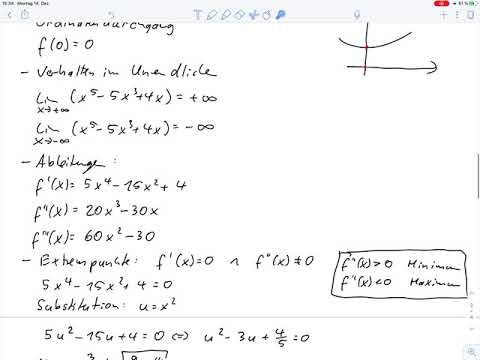 15:54 Montag 14. Dez.
61 %
Ordinatendurchgang
f(0) = 0
- Verhalten im Unendliche
lim x→+∞ (x⁵-5x³+4x) = +∞
lim x→-∞ (x⁵-5x³+4x) = -∞
- Ableitungen:
f'(x) = 5x⁴-15x²+4
f''(x) = 20x³-30x
f'''(x) = 60x²-30
- Extrempunkte: f'(x)=0 ∧ f''(x)≠0
f''(x)>0 Minimum
f''(x)<0 Maximum
5x⁴-15x²+4=0
Substitution: u=x²
5u²-15u+4=0 ⇔ u²-3u+4/5=0